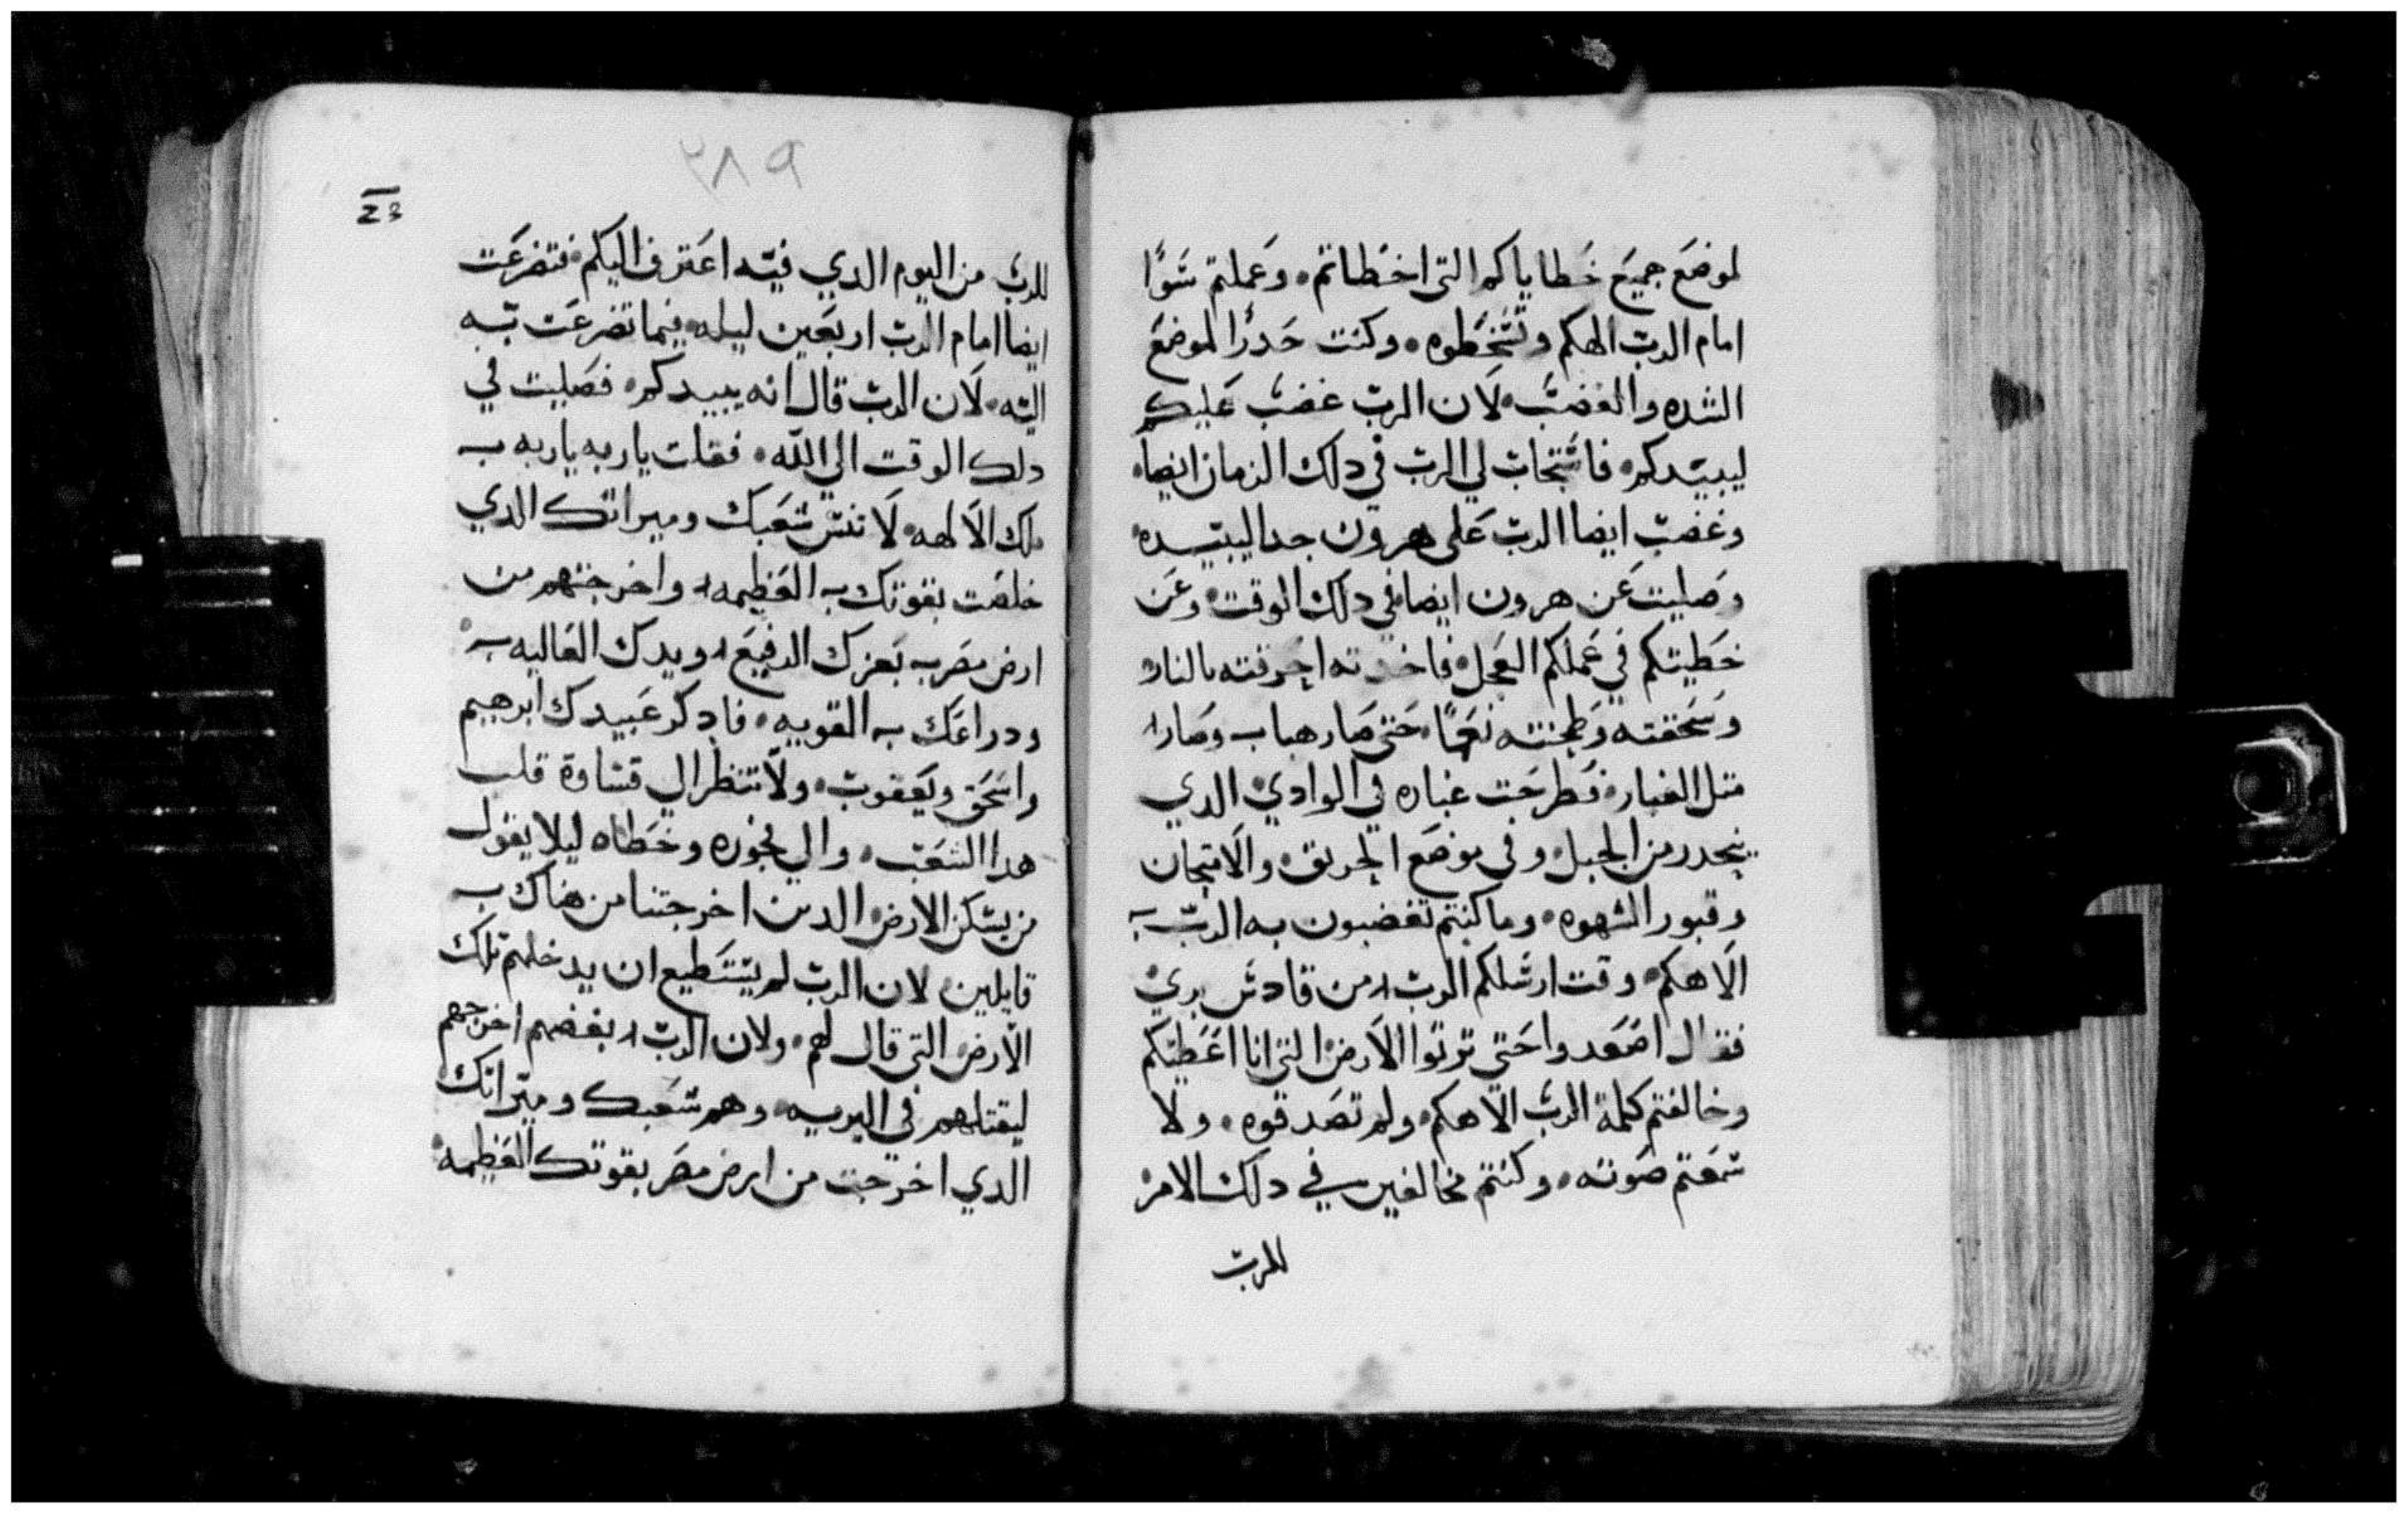 لموضع جميع خطاياكم التى اخطاتم٠ وعملتم سوًا
امام الرب الهكم وتسخطوه٠ وكنت حدرًا لموضع
الشده والغضب٠ لان الرب غضب عليكم
ليبيدكم٠ فاستجاب لي الرب في دلك الزمان ايضا٠
وغضب ايضا الرب على هرون جدا ليبيده٠
وصليت عن هرون ايضا في دلك الوقت٠ وعن
خطيتكم في عملكم العجل٠ فاخدته احرقته بالنار٠
وسحقته وطحنته نعما٠ حتى صار هبا وصار
متل الغبار٠ فطرحت غباره في الوادي الدي
ينحدر من الجبل٠ وفى موضع الحريق٠ والامتحان
وقبور الشهوه٠ وما كنتم تغضبون به الرب
الاهكم٠ وقت ارسلكم الرب من قادس بري
فقال اصعدوا حتى ترتوا الارض التى انا اعطيتكم
وخالفتم كلمة الرب الاهكم٠ ولم تصدقوه٠ ولا
سمعتم صوته٠ وكنتم مخالفين في دلك الامر
للرب
٢٨٩
للرب من اليوم الدي فيه اعترف اليكم٠ فتضرعت
ايضا امام الرب اربعين ليله٠ فيما تضرعت به
اليه٠ لان الرب قال انه يبيدكم٠ فصليت في
دلك الوقت الي الله٠ فقلت ياربه ياربه
ملك الالهه٠ لا تنس شعبك وميراتك الدي
خلصت بقوتك العظيمه واخرجتهم من
ارض مصر بعزك الرفيع ويدك العاليه
ودراعك القويه٠ فادكر عبيدك ابرهيم
واسحق ويعقوب٠ ولا تنظر الي قساوة قلب
هدا الشعب٠ والي فجوره وخطاه ليلا يقول
من يسكن الارض الدين اخرجتنا من هناك
قايلين لان الرب لم يستطيع ان يدخلهم تلك
الارض التى قال لهم٠ ولان الرب بغضهم اخرجهم
ليقتلهم في البريه٠ وهم شعبك وميراتك
الدي اخرجت من ارض مصر بقوتك العظيمه